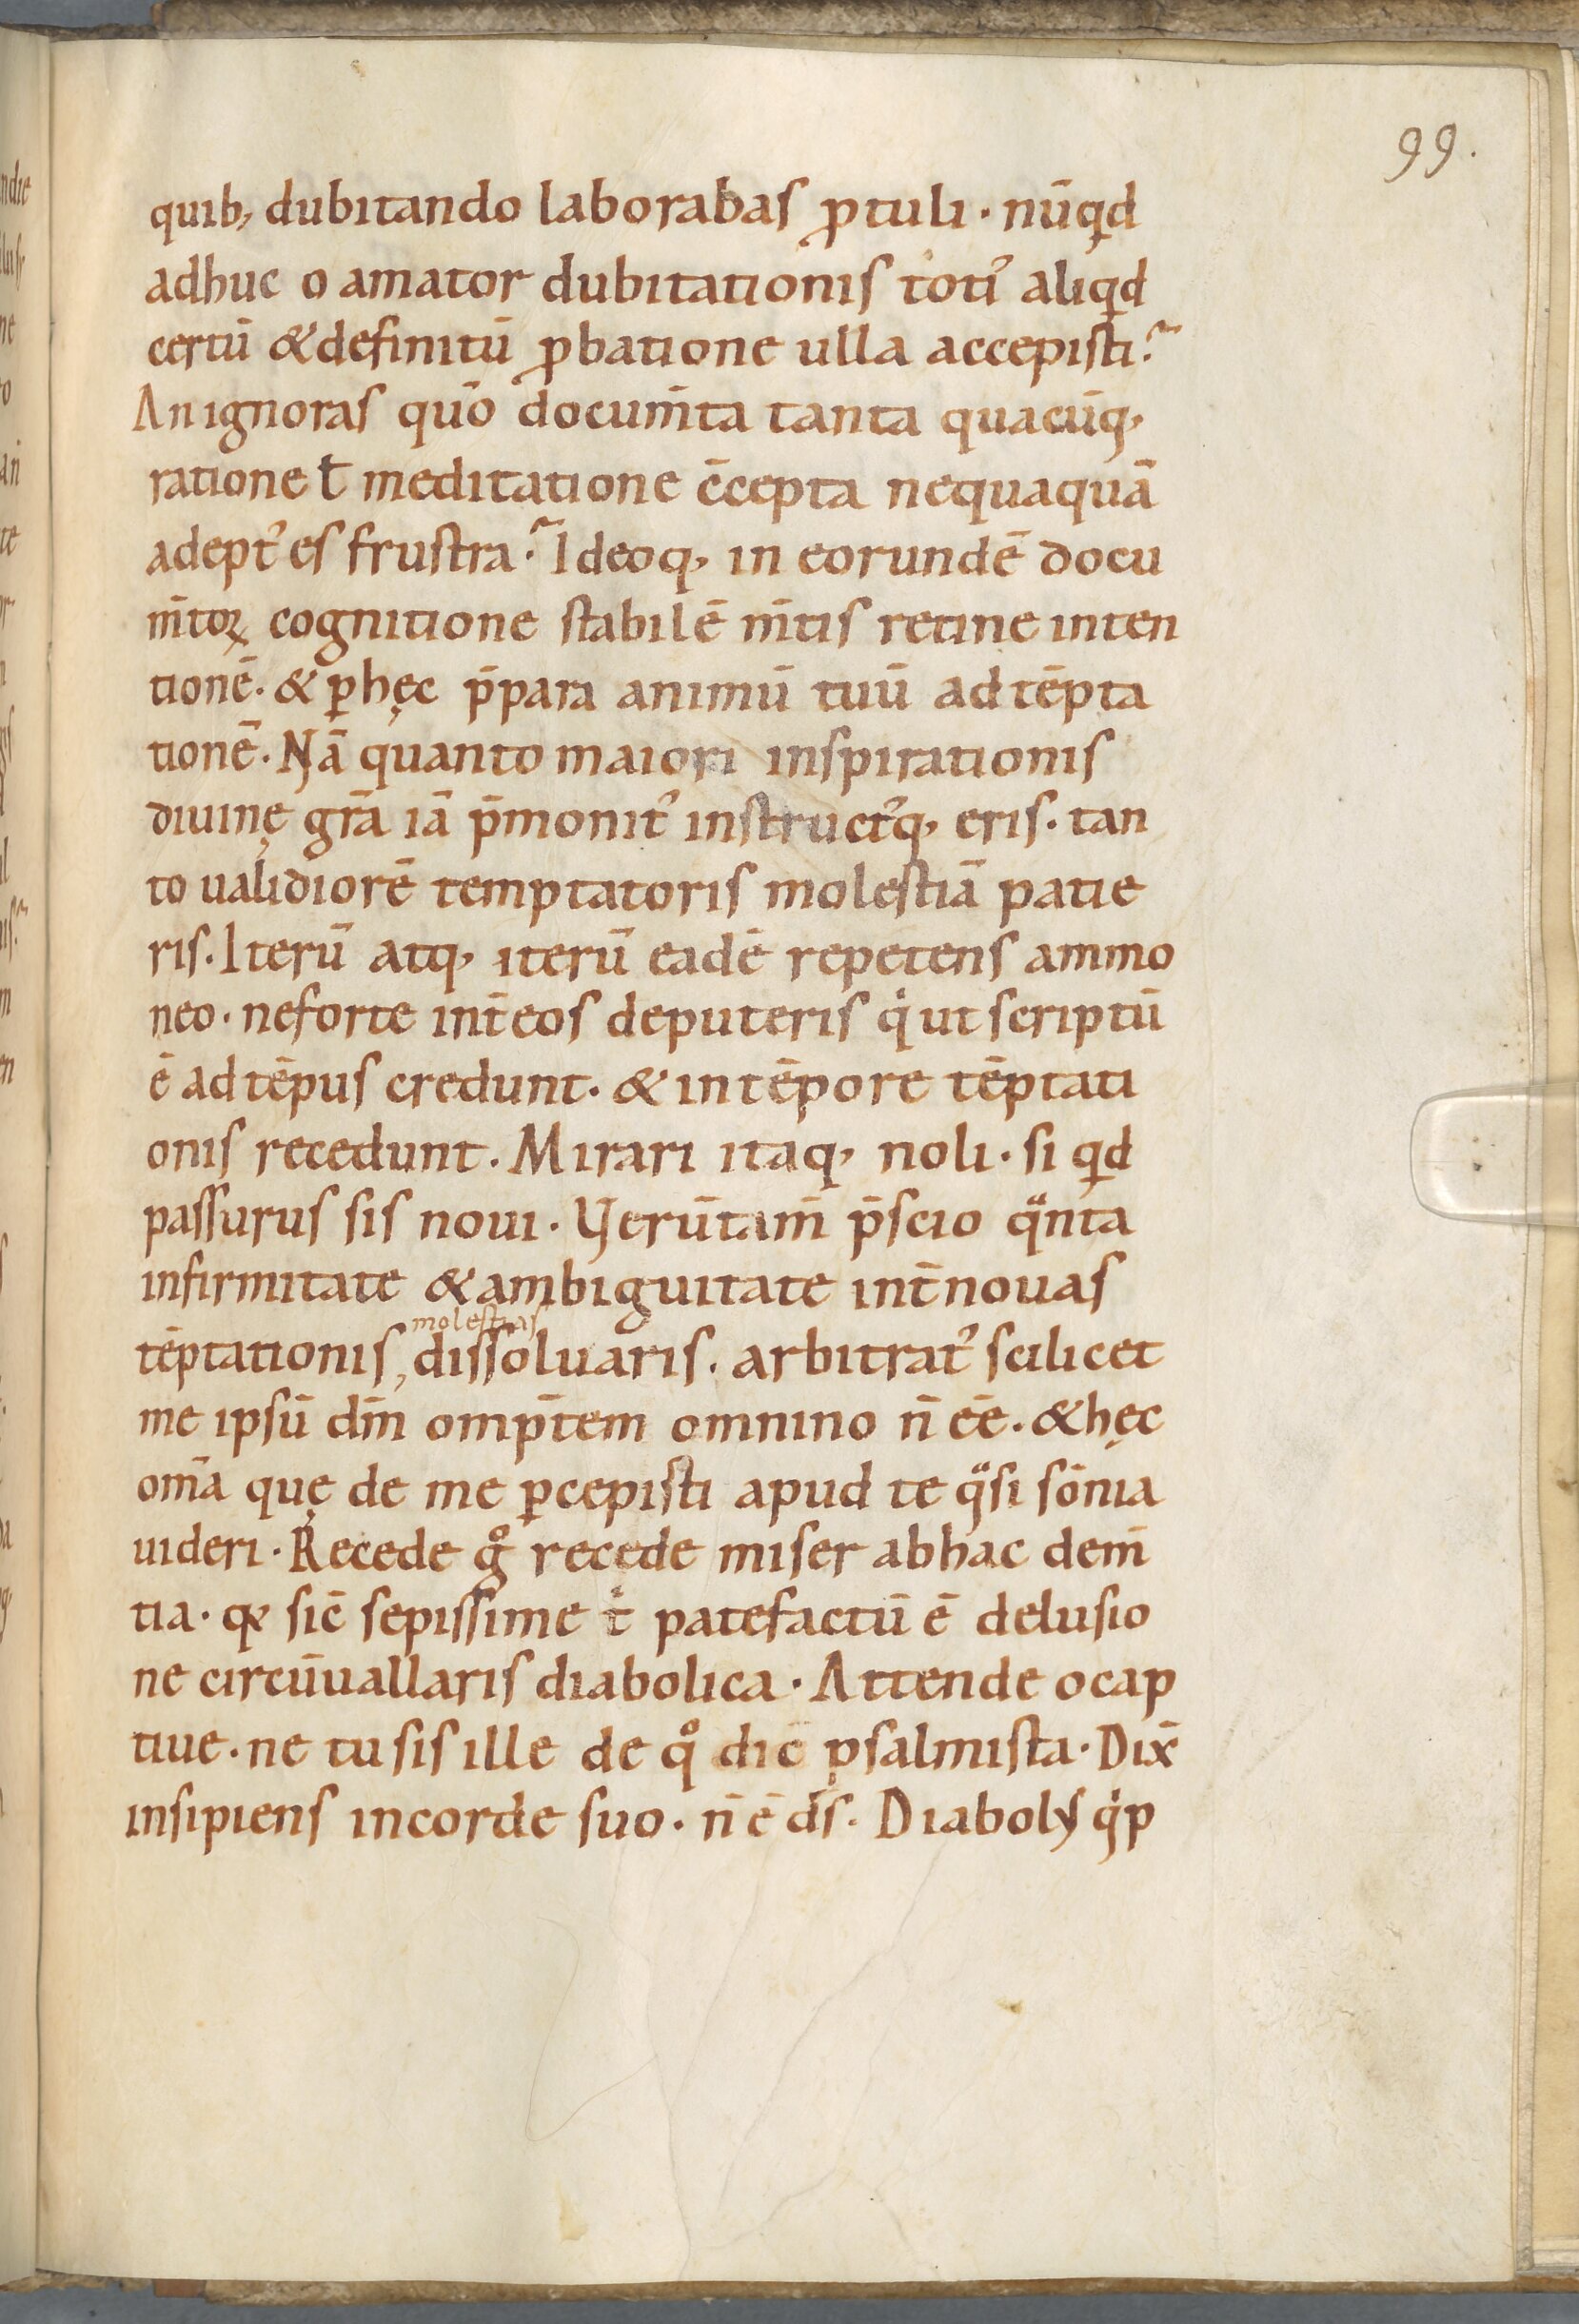 99.
quib; dubitando laborabas ꝓtuli. nūqͥd
adhuc o amator dubitationis totiꝰ aliqͥd
certū & definitū ꝓbatione ulla accepisti?
An ignoras quō docum̄ta tanta quacūq;
ratione ł meditatione c̄cepta nequaquā
adeptꝰ es frustra? Ideoq; in eorundē docu
m̄toꝝ cognitione stabilē m̄tis retine inten
tionē. & ꝑ hęc p̄para animū tuū ad tēpta
tionē. Nā quanto maiori inspirationis
diuinę grā iā p̄monitꝰ instructꝰq; eris. tan
to ualidiorē temptatoris molestiā patie
ris. Iterū atq; iterū eadē repetens ammo
neo. ne forte int̄ eos deputeris qͥ ut scriptū
ē ad tēpus credunt. & in tēpore tēptati
onis recedunt. Mirari itaq; noli. si qͥd
passurus sis noui. Verūtam̄ p̄scio qͣnta
infirmitate & ambiguitate int̄ nouas
molestias
tēptationis, dissoluaris. arbitratꝰ scilicet
me ipsū dm̄ omp̄tem omnino n̄ eē. & hęc
om̄a quę de me ꝑcepisti apud te qͣsi sōnia
uideri. Recede gͦ recede miser ab hac dem̄
tia. qꝛ sic̄ sepissime tͥ patefactū ē delusio
ne circūuallaris diabolica. Attende o cap
tiue. ne tu sis ille de qͦ dic̄ psalmista. Dix̄
insipiens in corde suo. n̄ ē ds̄. Diabolus qͥp